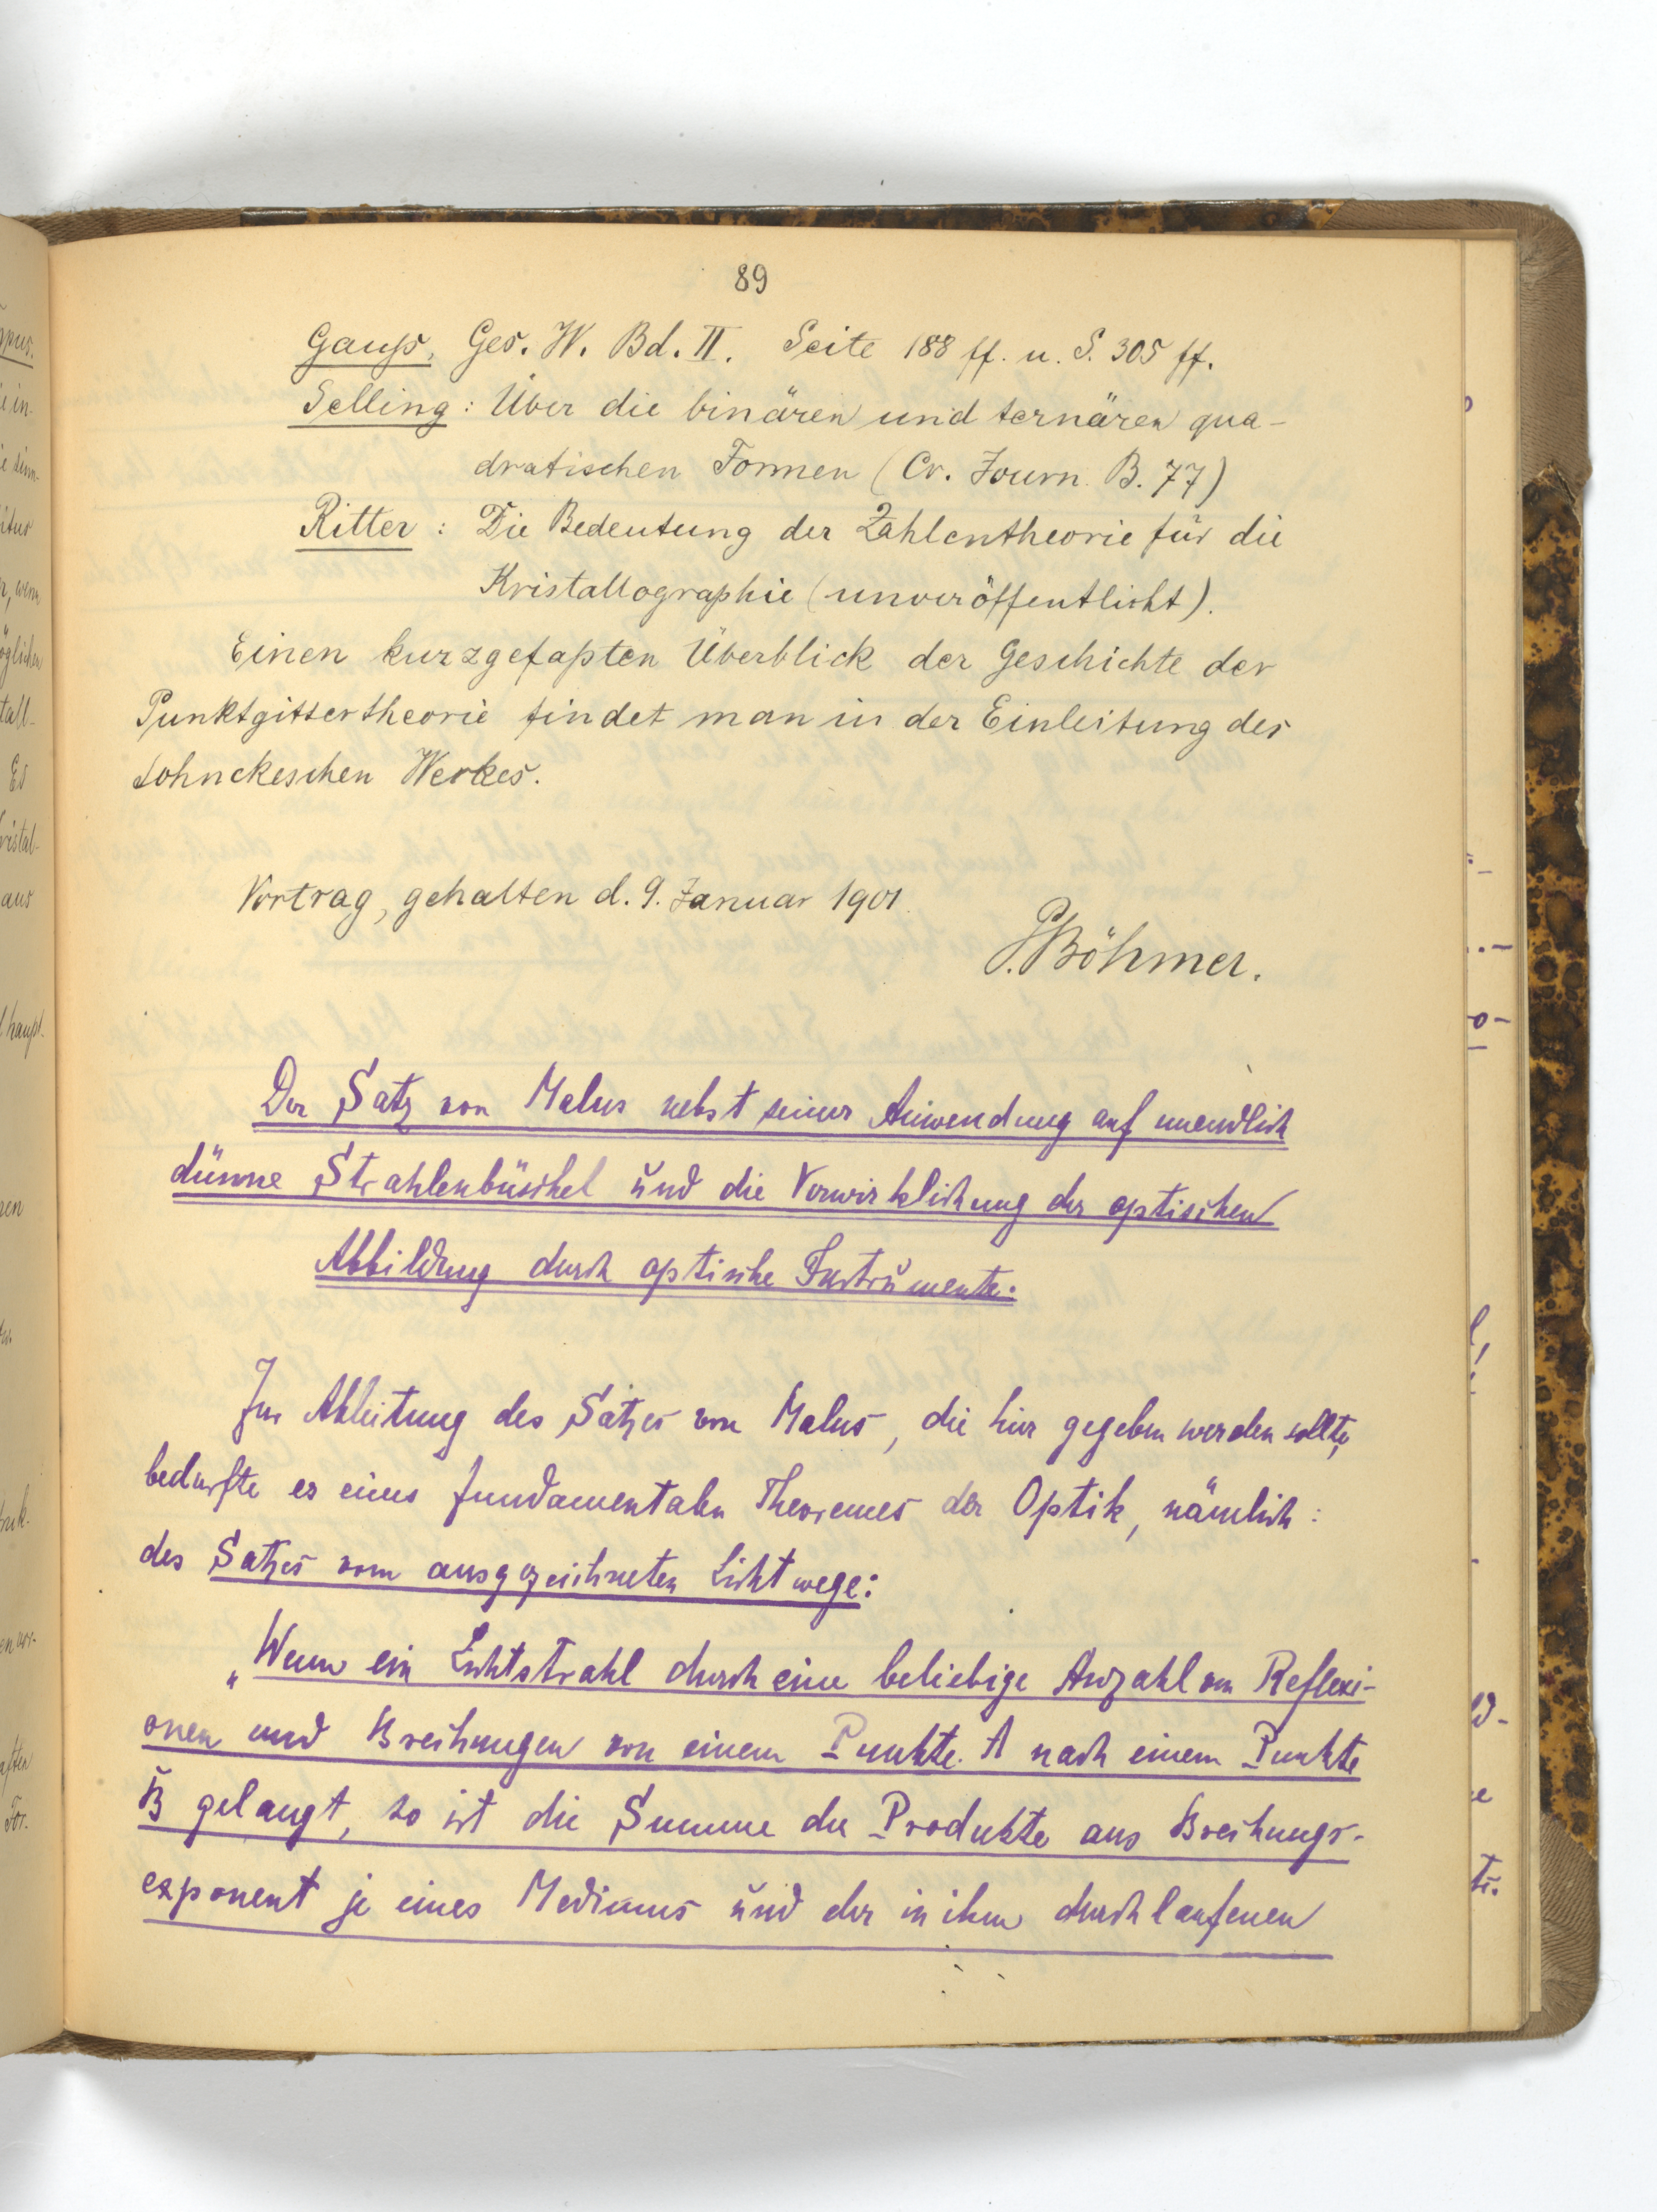 89
Gauß, Ges. W. Bd. II. Seite 188 ff. u. S. 305 ff.
Selling: Über die binären und ternären qua-
dratischen Formen (Cr. Journ. B. 77)
Ritter: Die Bedeutung der Zahlentheorie für die
Kristallographie (unveröffentlicht).
Einen kurzgefaßten Überblick der Geschichte der
Punktgittertheorie findet man in der Einleitung des
Sohnckeschen Werkes.
Vortrag, gehalten d. 9. Januar 1901.
P. Böhmer.
Der Satz von Malus nebst seiner Anwendung auf unendlich
dünne Strahlenbüschel und die Verwirklichung der optischen
Abbildung durch optische Instrumente.
Zur Ableitung des Satzes von Malus, die hier gegeben werden sollte,
bedurfte es eines fundamentalen Theoremes der Optik, nämlich:
des Satzes vom ausgezeichneten Lichtwege:
„Wenn ein Lichtstrahl durch eine beliebige Anzahl von Reflexi-
onen und Brechungen von einem Punkte A nach einem Punkte
B gelangt, so ist die Summe der Produkte aus Brechungs-
exponent je eines Mediums und der in ihm durchlaufenen